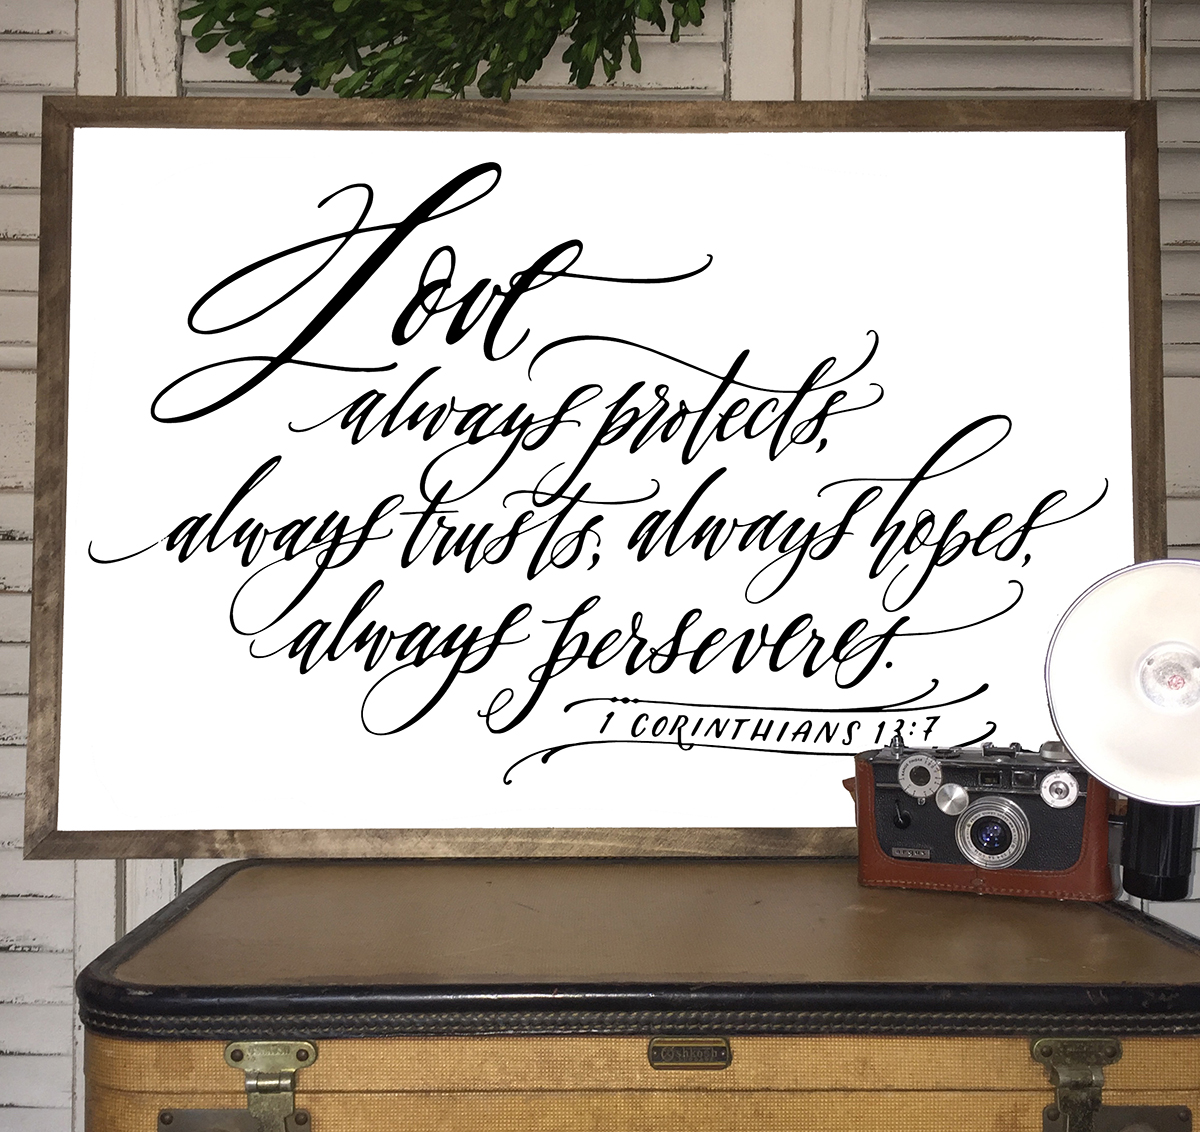 Love
always protects,
always trusts, always hopes,
always perseveres.
1 CORINTHIANS 13:7
ARGUS
Oshkosh